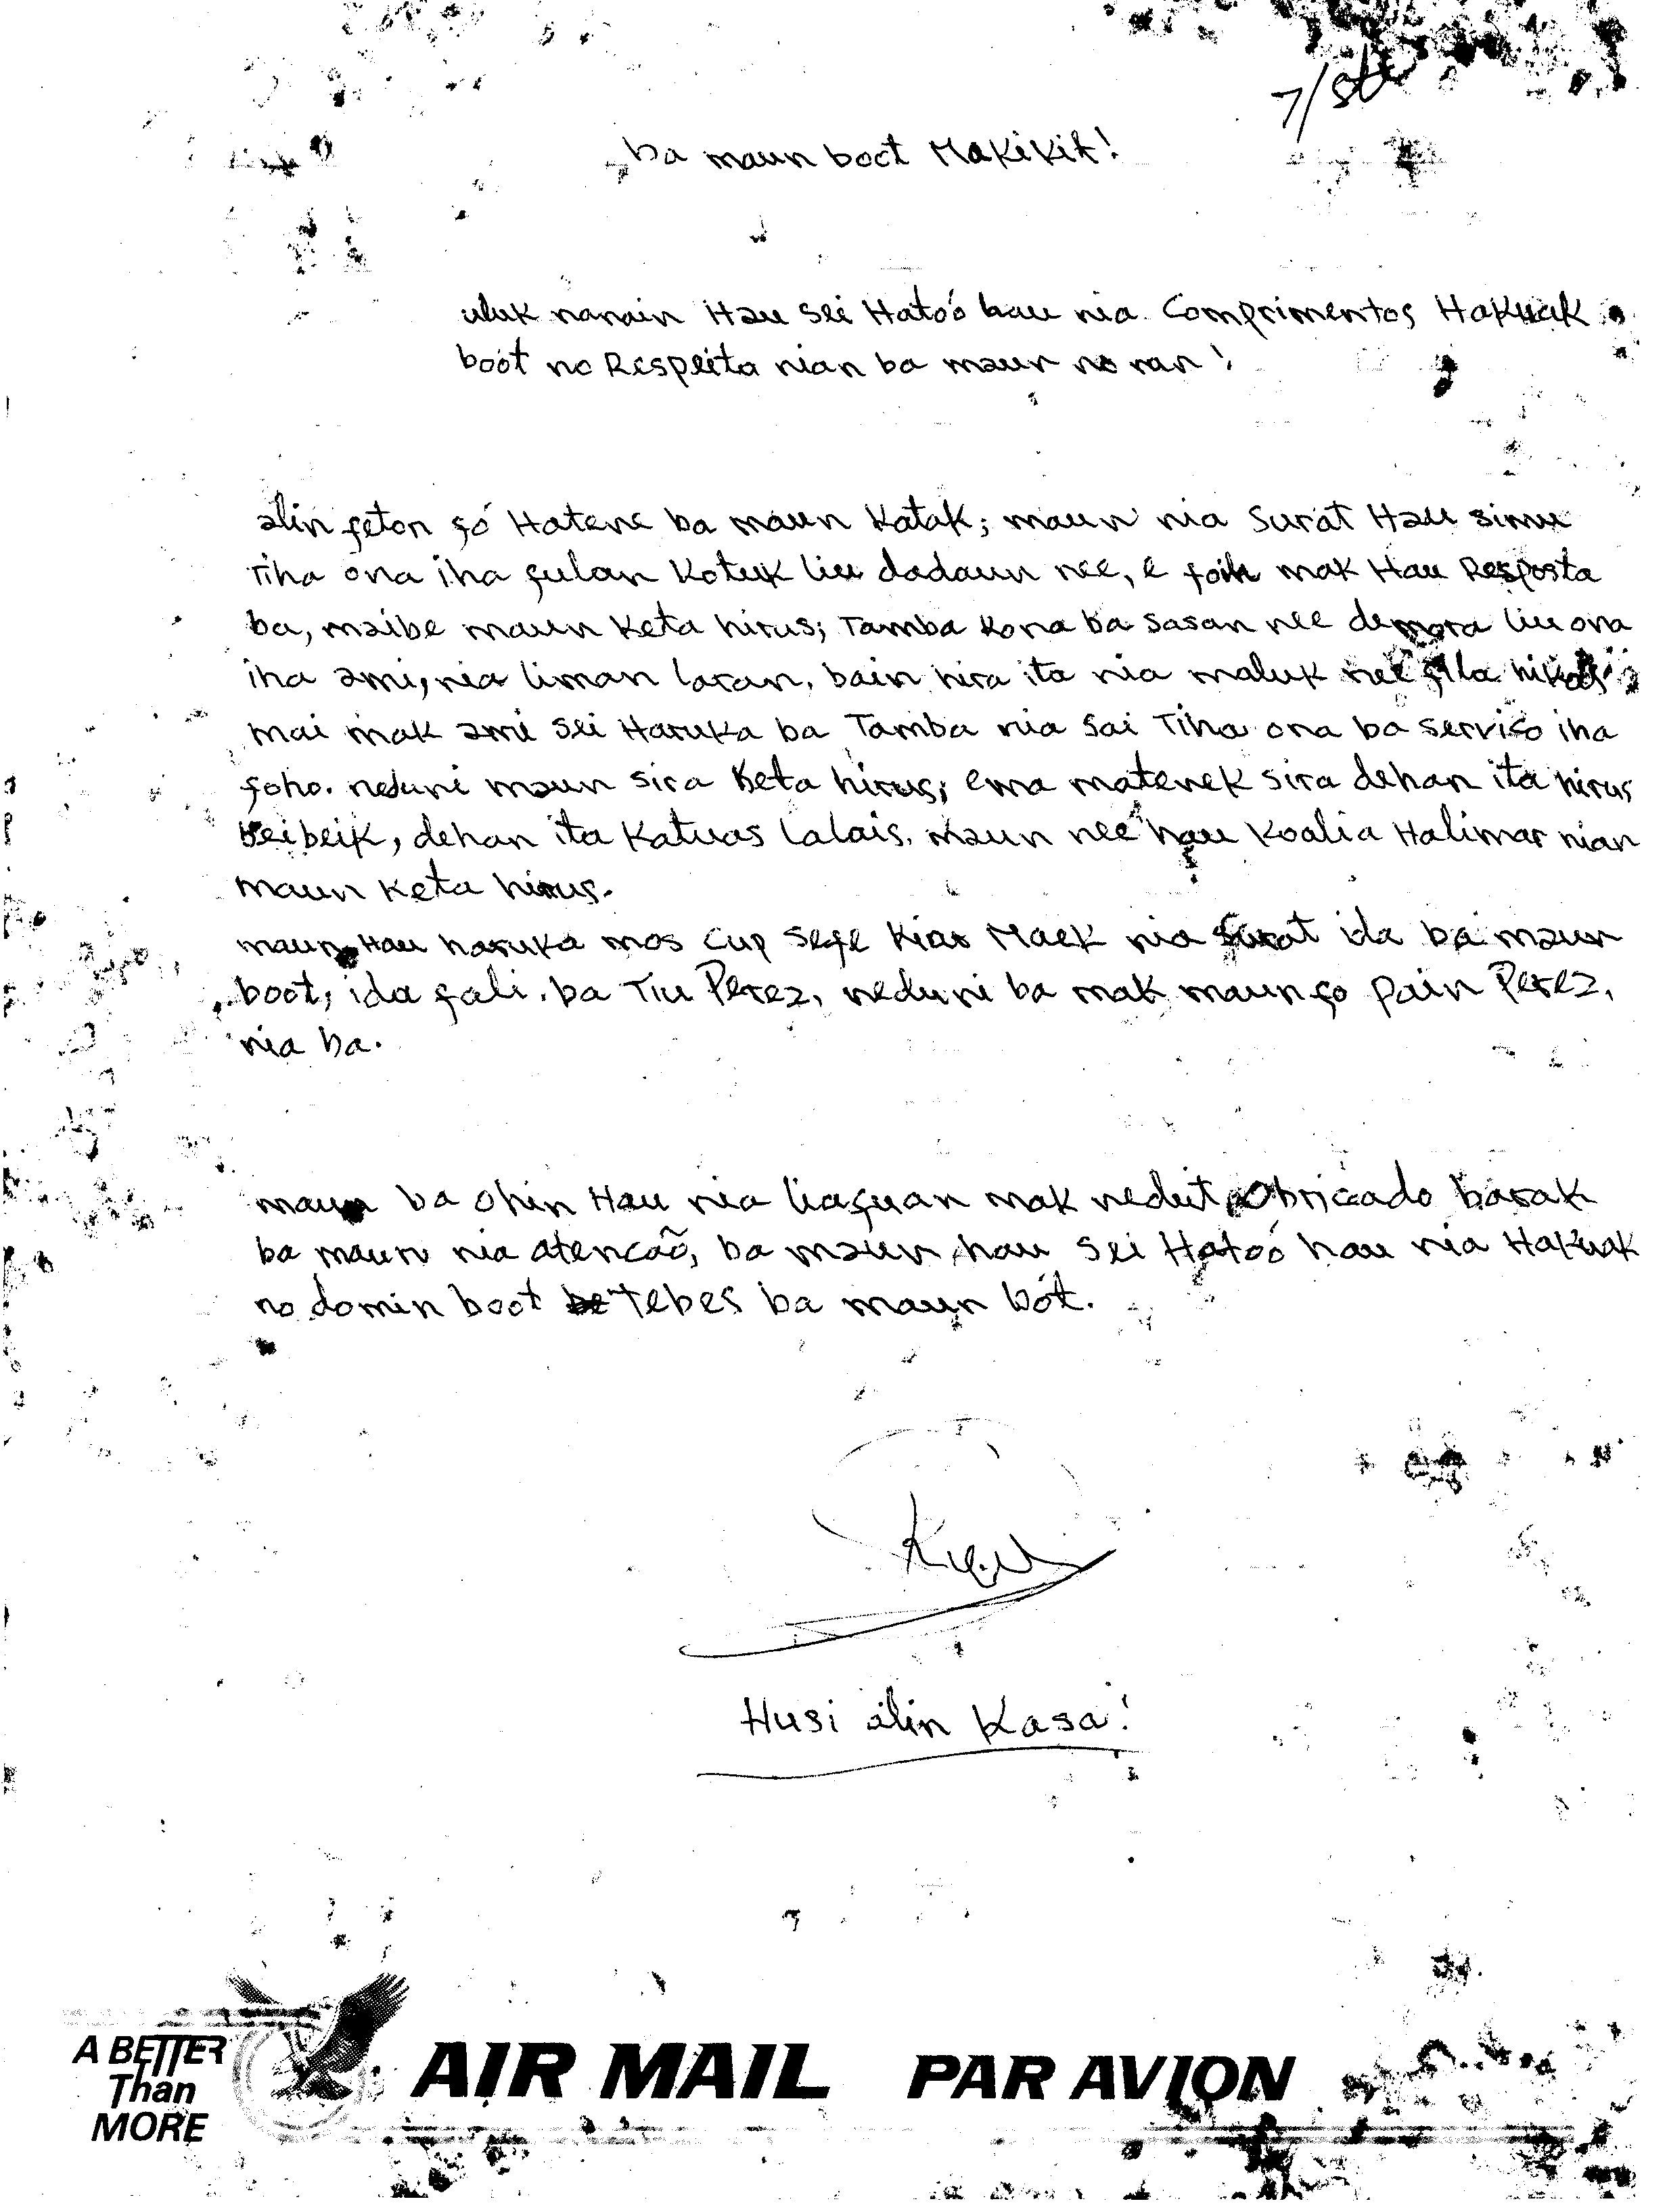 7/st
ba maun boot Makikit!
uluk nanain Hau sei Hatoó hau nia Comprimentos Hakuak
boót no Respeita nian ba maun no ran!
alin feton fó Hatene ba maun Katak; maun nia Surat Hau simu
Tiha ona iha fulan Kotuk liu dadaun nee, e foin mak Hau Resposta
ba, maibe maun Keta hirus; Tamba Kona ba sasan nee demora liu ona
iha ami, nia liman laran, bain hira ita nia maluk nee fila hikas
mai mak ami sei Haruka ba Tamba nia sai Tiha ona ba serviso iha
foho. neduni maun sira Keta hirus; ema matenek sira dehan ita hirus
beibeik, dehan ita Katuas lalais. maun nee hau Koalia Halimar nian
maun Keta hirus.
maun Hau haruka mos Cup Sefe Kiar Maek nia Surat ida ba maun
boot, ida fali ba Tiu Perez, neduni ba mak maun fo pain Perez,
nia ba.
maun ba ohin Hau nia liafuan mak nedut, Obricado barak
ba maun nia atencaõ, ba maun hau sei Hatoó hau nia Hakuak
no domin boot Tebes ba maun bót.
Husi alin Kasa!
A BETTER
Than
MORE
AIR MAIL PAR AVION